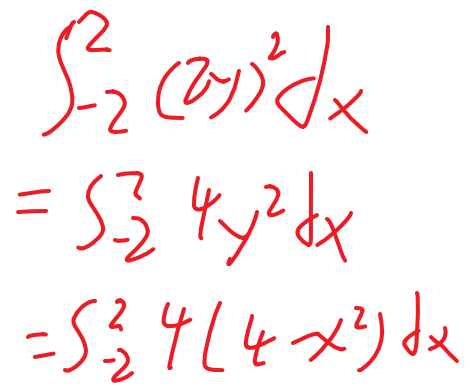 ∫_{-2}^{2} (2y)^2 dx
= ∫_{-2}^{2} 4y^2 dx
= ∫_{-2}^{2} 4(4-x^2) dx